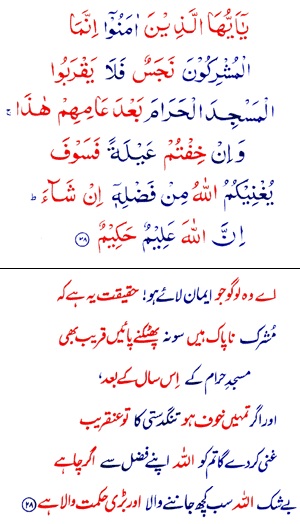 يٰۤاَيُّهَا الَّذِيْنَ اٰمَنُوْۤا اِنَّمَا
الْمُشْرِكُوْنَ نَجَسٌ فَلَا يَقْرَبُوا
الْمَسْجِدَ الْحَرَامَ بَعْدَ عَامِهِمْ هٰذَا ۚ
وَ اِنْ خِفْتُمْ عَيْلَةً فَسَوْفَ
يُغْنِيْكُمُ اللّٰهُ مِنْ فَضْلِهٖۤ اِنْ شَآءَ ؕ
اِنَّ اللّٰهَ عَلِيْمٌ حَكِيْمٌ ﴿۲۸﴾
اے وہ لوگو جو ایمان لائے ہو! حقیقت یہ ہے کہ
مُشرک ناپاک ہیں سو نہ پھٹکنے پائیں قریب بھی
مسجدِ حرام کے اِس سال کے بعد،
اور اگر تمہیں خوف ہو تنگدستی کا تو عنقریب
غنی کر دے گا تم کو اللہ اپنے فضل سے اگر چاہے
بیشک اللہ سب کچھ جاننے والا اور بڑی حکمت والا ہے ﴿۲۸﴾